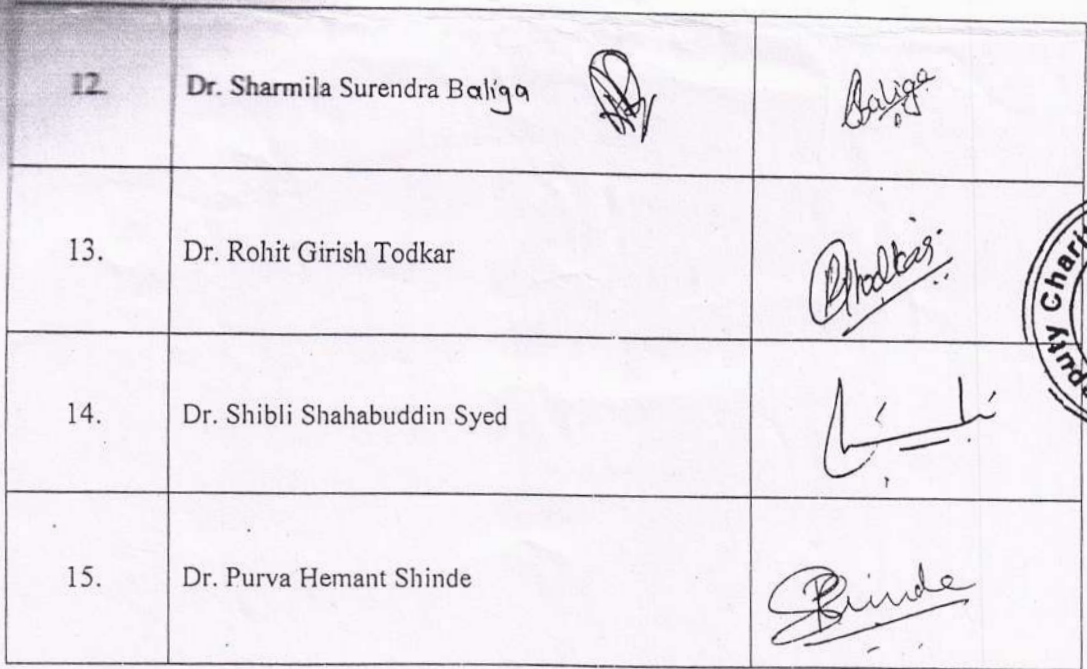 12. Dr. Sharmila Surendra Baliga Baliga
13. Dr. Rohit Girish Todkar
14. Dr. Shibli Shahabuddin Syed
15. Dr. Purva Hemant Shinde Shinde
puty Charit